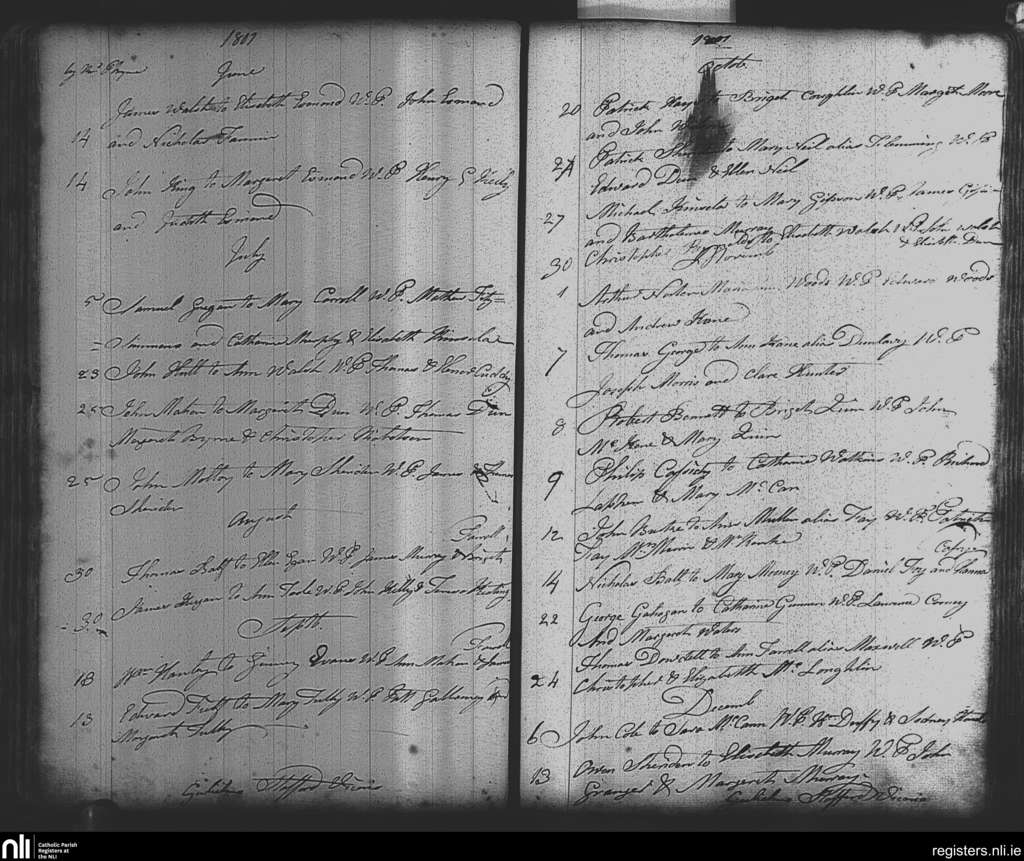 1807
June
James Walsh to Elizabeth Esmond W.P. John Esmond
14 and Nicholas Fannin
14 John King to Margaret Esmond W.P. Henry Kelly
and Judith Esmond
July
5 Samuel Gregan to Mary Carroll W.P. Mathew Fitz=
=simmons and Catharine Murphy & Elizabeth Kinsula
23 John Hutt to Ann Walsh W.P. Thomas & Honor Cuddy
25 John Mahon to Margaret Dun W.P. Thomas Dun
Margaret Byrne & Christopher Nicholson
25 John Molloy to Mary Sheridan W.P. James &
Sheridan
August
Farrell
30 Thomas Balf to Ellen Egan W.P. James Murray & Bridget
30 James Hegan to Ann Toole W.P. John Kelly & Keating
Septb.
Farrell
13 Wm. Hanlay to Jinny Evans W.P. Ann Mahon & James
13 Edward Tutt to Mary Tully W.P. Patt Gallaway and
Margaret Tully
Gulielmus Stafford Vicario
1807
Octob.
20 Patrick to Briget Coughlin W.P. Margeret Moore
and John
Patrick to Mary Neil alias Flemming W.P.
Edward Dun & Ellen Neil
27 Michael Kinsela to Mary Gibson W.P. James
and Bartholomew Murray
30 Christopher Reynolds to Elizabeth Walsh W.P. John Walsh
& Elizabeth Dun
Novemb
1 Arthur Woods W.P. Edward Woods
and Andrew Kane
7 Thomas George to Ann Kane alias Dunlavy W.P.
Joseph Morris and Clare Hunter
8 Robert Bennett to Briget Quin W.P. John
McKane & Mary Quin
9 Philip Cassidy to Catharine Watkins W.P. Richard
& Mary McCan
12 John Burke to Ann Mullen alias Fay W.P. Patrick
Fay Mrs. & McKenna
14 Nicholas Ball to Mary Mooney W.P. Daniel Foy and Hanna
22 George Gahagan to Catharine Gunnan W.P. Laurence Corney
And Margaret Waters
Thomas Dowdell to Ann Farrell alias Maxwell W.P.
24 Christopher & Elizabeth McLoughlin
Decemb
6 John Cole to Sara McCann W.P. Wm Duffy & Sidney
13 Owen Sheridan to Elizabeth Murray W.P. John
Granger & Margaret Murray
Gulielmus Stafford Vicario
nli
Catholic Parish
Registers at
the NLI
registers.nli.ie